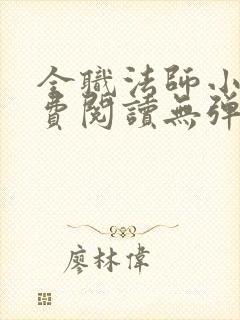 全職法師小
費閱讀無彈
廖林偉